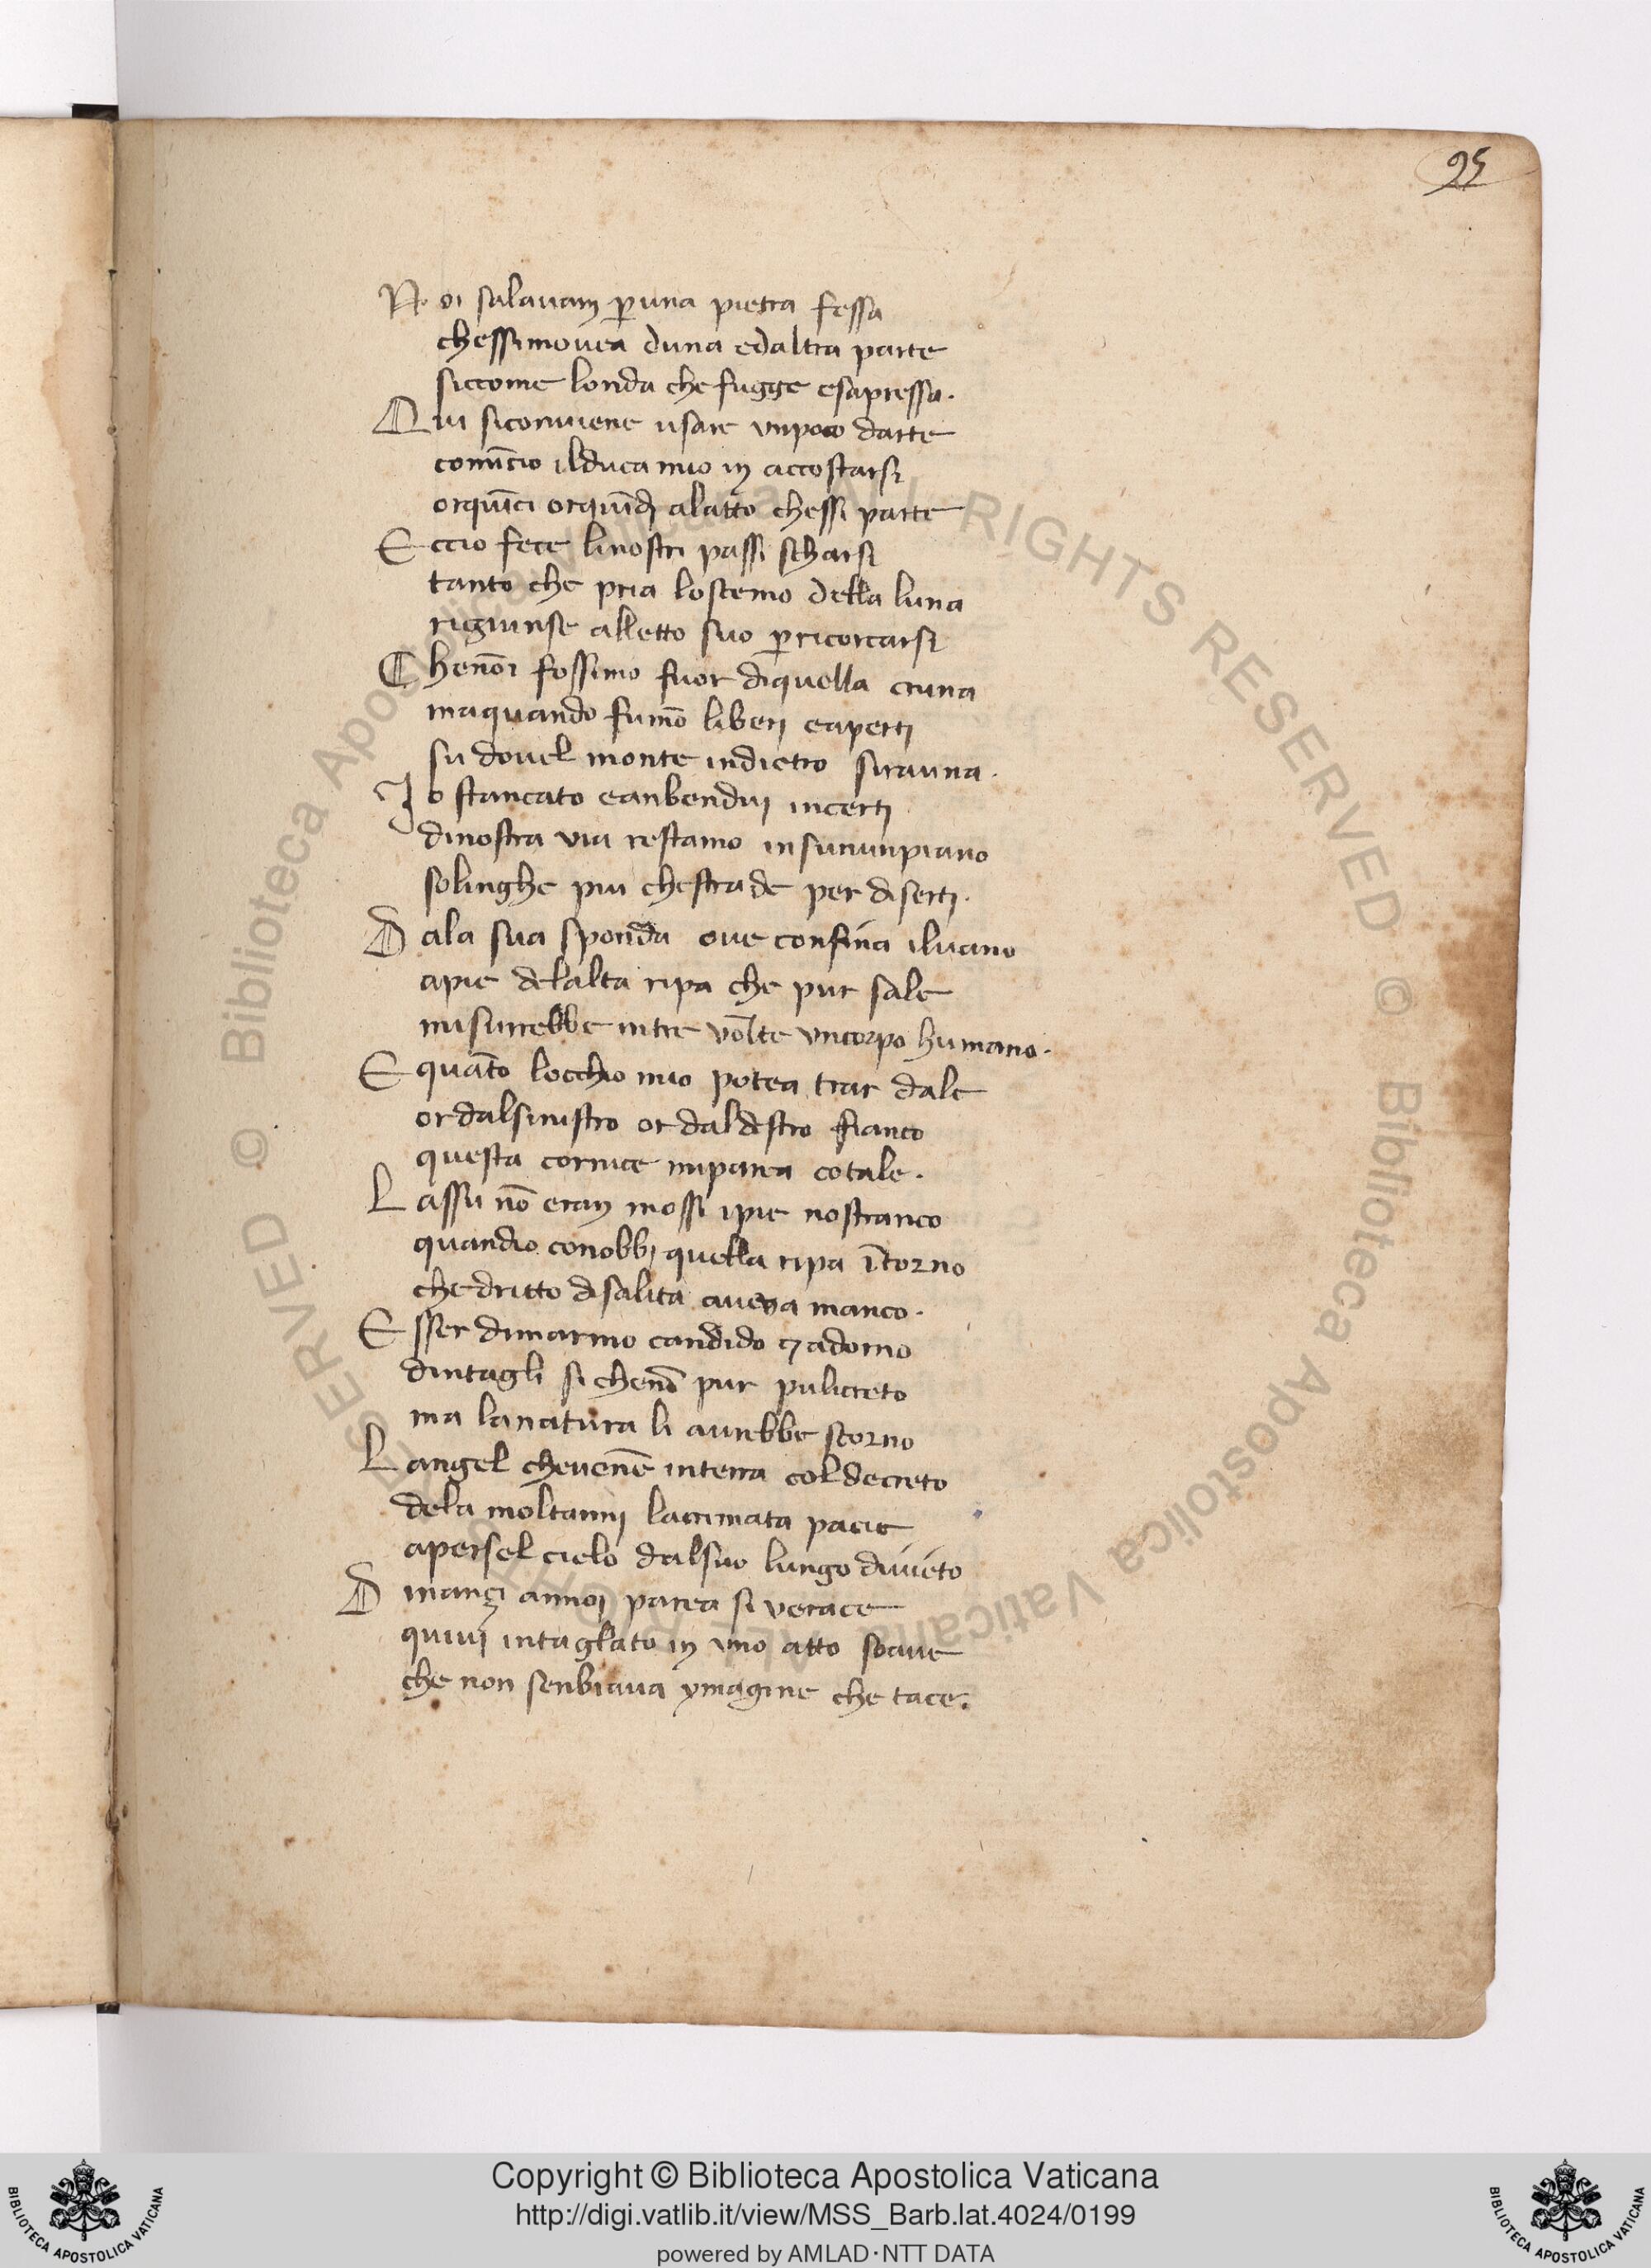 95
N oi salauam p̱una pietra fessa
chessimouea duna edaltra parte
siccome londa che fugge esapressa.
Q ui siconuiene usare unpoco darte
comīcio ilduca mio in accostarsi
orquīci orquīdi alatto chessi parte
E ccio fece linostri passi scharsi
tanto che pria loscemo della luna
rigiunse alletto suo p̱ricorcarsi
C henōi fossimo fuor diquella cruna
maquando fumō liberi eaperti
su douel monte indietro sirauna.
I o stancato eanbendui incerti
dinostra via restamo insununpiano
solinghe piu chestrade per diserti.
D ala sua sponda oue confina iluano
apie delalta ripa che pur sale
misurrebbe intre volte uncorpo humano.
E quāto locchio mio potea trar dale
or dalsinistro or daldestro fianco
questa cornice miparea cotale.
L assu nō eran mossi ipie nostranco
quandio conobbi quella ripa ītorno
che dritto disalita aueua manco.
E sser dimarmo candido ⁊ adorno
dintagli si chenō pur policreto
ma lanatura li aurebbe scorno
L angel cheuenē interra col decreto
dela moltanni lacrimata pace
apersel cielo dalsuo lungo diuieto
D inançi annoi parea si verace
quiui intagliato in uno atto soaue
che non senbiaua ymagine che tace.
© Biblioteca Apostolica Vaticana ALL RIGHTS RESERVED © Biblioteca Apostolica Vaticana ALL RIGHTS RESERVED
Copyright © Biblioteca Apostolica Vaticana
http://digi.vatlib.it/view/MSS_Barb.lat.4024/0199
powered by AMLAD·NTT DATA
BIBLIOTECA APOSTOLICA VATICANA
BIBLIOTECA APOSTOLICA VATICANA